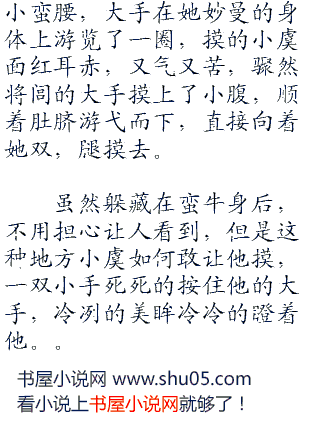 小蛮腰，大手在她妙曼的身
体上游览了一圈，摸的小虞
面红耳赤，又气又苦，骤然
将闾的大手摸上了小腹，顺
着肚脐游弋而下，直接向着
她双，腿摸去。
虽然躲藏在蛮牛身后，
不用担心让人看到，但是这
种地方小虞如何敢让他摸，
一双小手死死的按住他的大
手，冷冽的美眸冷冷的蹬着
他。。
书屋小说网 www.shu05.com
看小说上书屋小说网就够了！